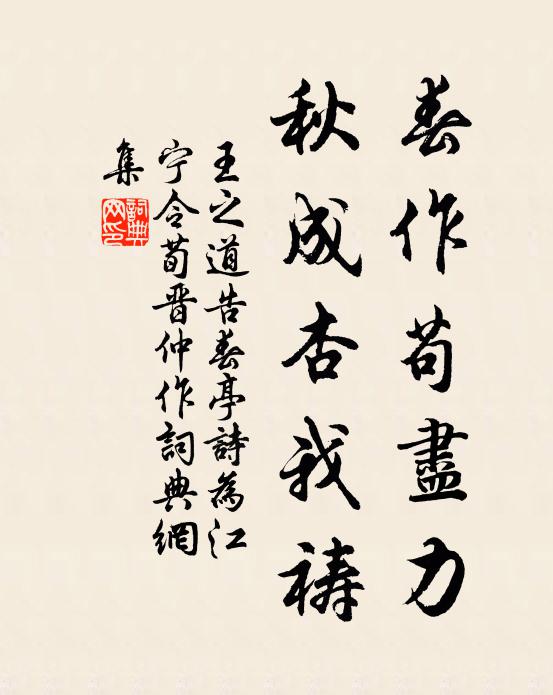 春作苟盡力
秋成杏我禱
王之道告春亭詩為江
宁令荀晋仲作詞典網
集
詞典
网印